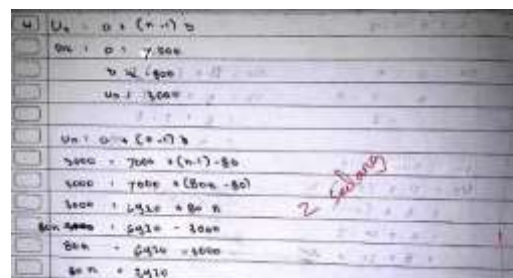 4 Un = a + (n-1) b
Dik : a = 7.000
b = -800
Un = 3000
Un = a + (n-1) b
3000 = 7000 + (n-1) -80
3000 = 7000 + (80n - 80)
3000 = 6920 + 80 n
80n = 6920 - 3000
80n = 6920 - 3000
80 n = 3920
2 sedang